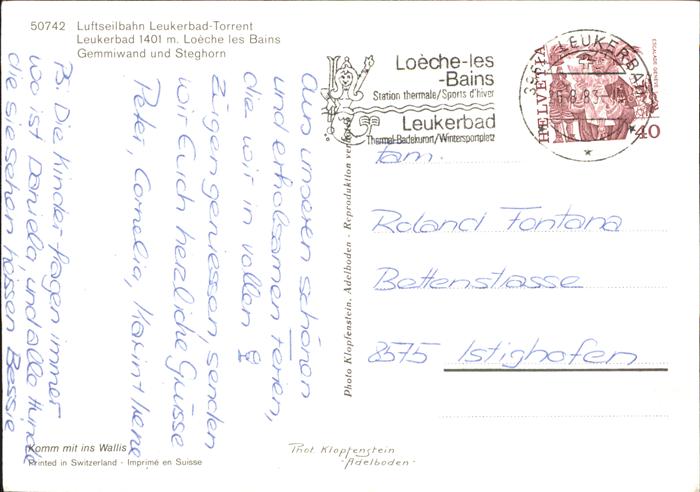 50742 Luftseilbahn Leukerbad-Torrent
Leukerbad 1401 m. Loèche les Bains
Gemmiwand und Steghorn
Aus unseren schönen
und erholsamen Ferien,
die wir in vollen
Zügen geniessen, senden
wir Euch herzliche Grüsse
Peter, Cornelia, Karin + Irene
PS: Die Kinder fragen immer
wo ist Daniela, und alle Hunde
die sie sehen heissen Bessie
Komm mit ins Wallis
Printed in Switzerland - Imprimé en Suisse
Photo Klopfenstein, Adelboden - Reproduktion verboten
Loèche-les
-Bains
Station thermale/Sports d'hiver
Leukerbad
Thermal-Badekurort/Wintersportplatz
LEUKERBAD
HELVETIA
40
Fam.
Roland Fontana
Bettenstrasse
8575 Istighofen
Phot. Klopfenstein
-Adelboden-